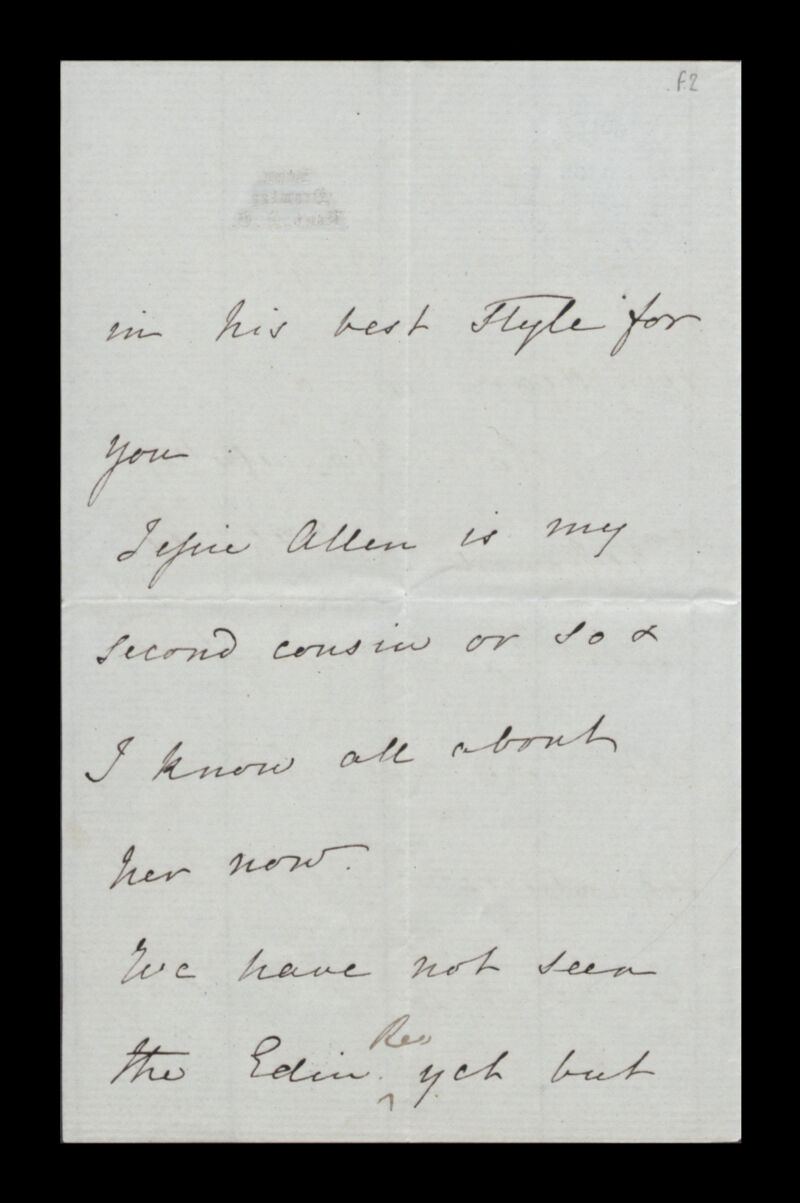 f.2
in his best style for
you
Jessie Allen is my
second cousin or so &
I know all about
her now.
We have not seen
the Edin. Rev yet but